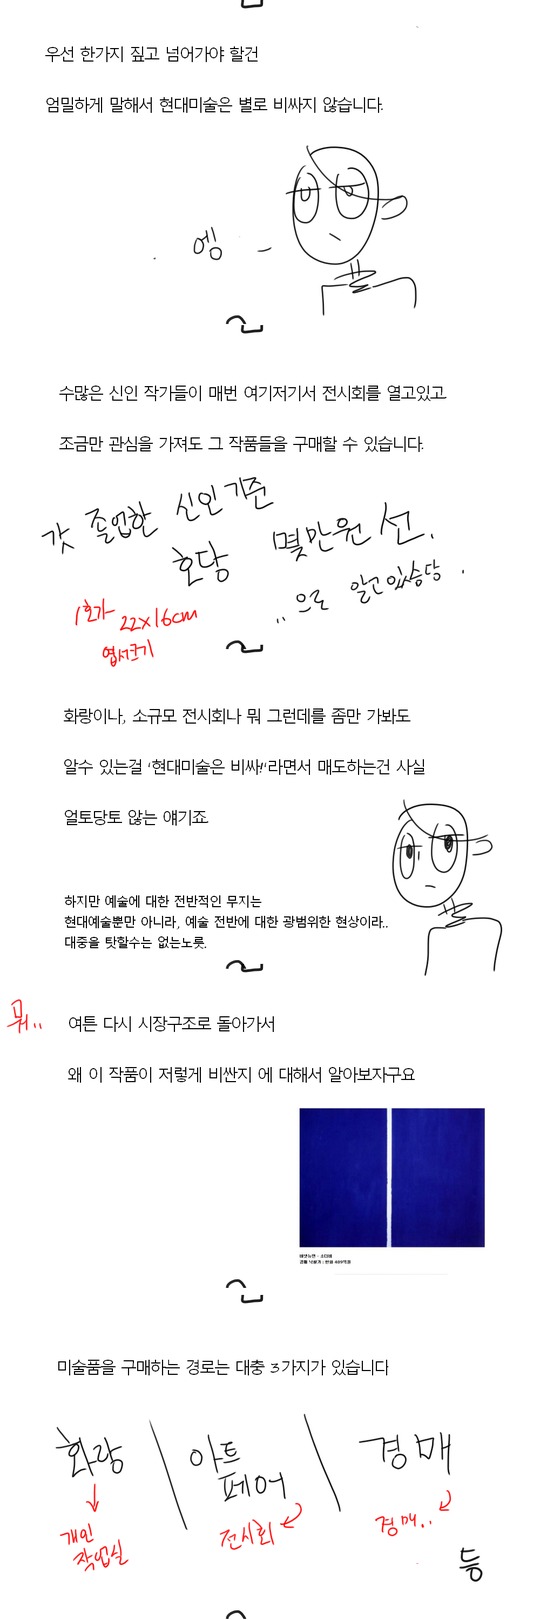 우선 한가지 짚고 넘어가야 할건
엄밀하게 말해서 현대미술은 별로 비싸지 않습니다.
엥
수많은 신인 작가들이 매번 여기저기서 전시회를 열고있고
조금만 관심을 가져도 그 작품들을 구매할 수 있습니다.
갓 졸업한 신인기준
호당 몇만원 선.
..으로 알고있습당.
1호가 22x16cm
엽서크기
화랑이나, 소규모 전시회나 뭐 그런데를 좀만 가봐도
알수 있는걸 '현대미술은 비싸!'라면서 매도하는건 사실
얼토당토 않는 얘기죠
하지만 예술에 대한 전반적인 무지는
현대예술뿐만 아니라, 예술 전반에 대한 광범위한 현상이라..
대중을 탓할수는 없는노릇.
뭐..
여튼 다시 시장구조로 돌아가서
왜 이 작품이 저렇게 비싼지 에 대해서 알아보자구요
미술품을 구매하는 경로는 대충 3가지가 있습니다
화랑 / 아트페어 / 경매
개인 작업실
전시회
경매..
등